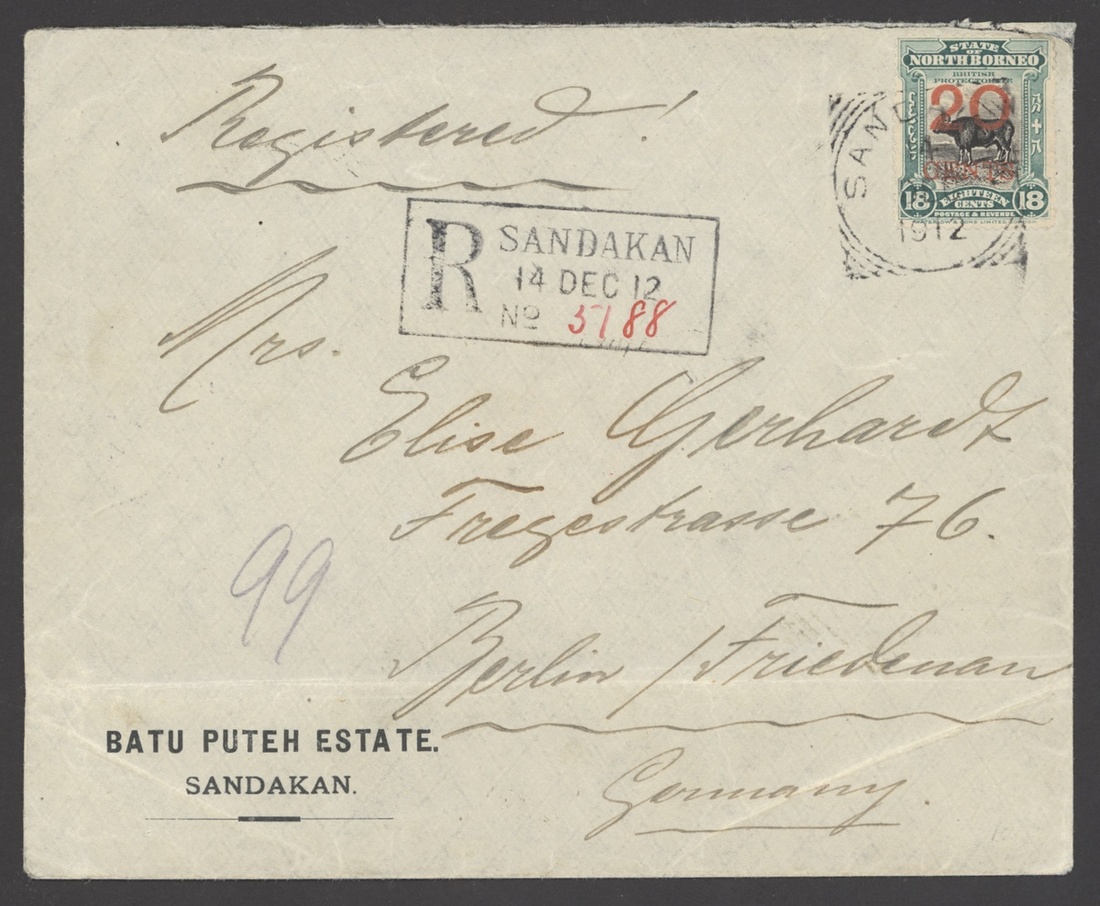 Registered!
STATE
OF
NORTH BORNEO
BRITISH
PROTECTORATE
20
CENTS
18 EIGHTEEN 18
CENTS
POSTAGE & REVENUE
1912
R SANDAKAN
14 DEC 12
No 5188
Mrs.
Elise Gerhardt
Fregestrasse 76.
Berlin / Friedenau
Germany.
99
BATU PUTEH ESTATE.
SANDAKAN.